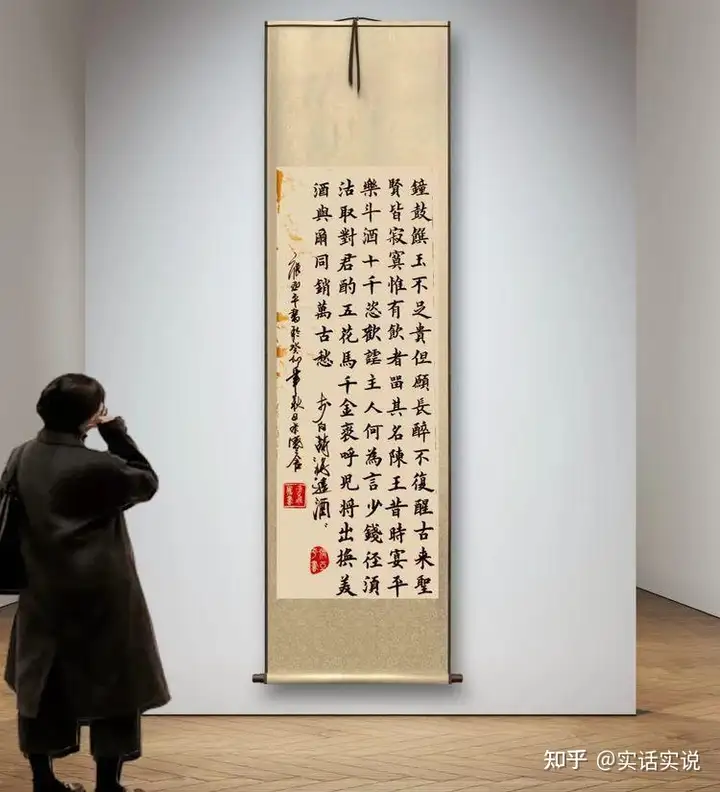 鐘鼓饌玉不足貴但願長醉不復醒古来聖
賢皆寂寞惟有飲者畱其名陳王昔時宴平
樂斗酒十千恣歡謔主人何為言少錢径湏
沽取對君酌五花馬千金裘呼児将出換美
酒與爾同銷萬古愁 李白詩將進酒
平書於癸卯年秋日
知乎 @实话实说